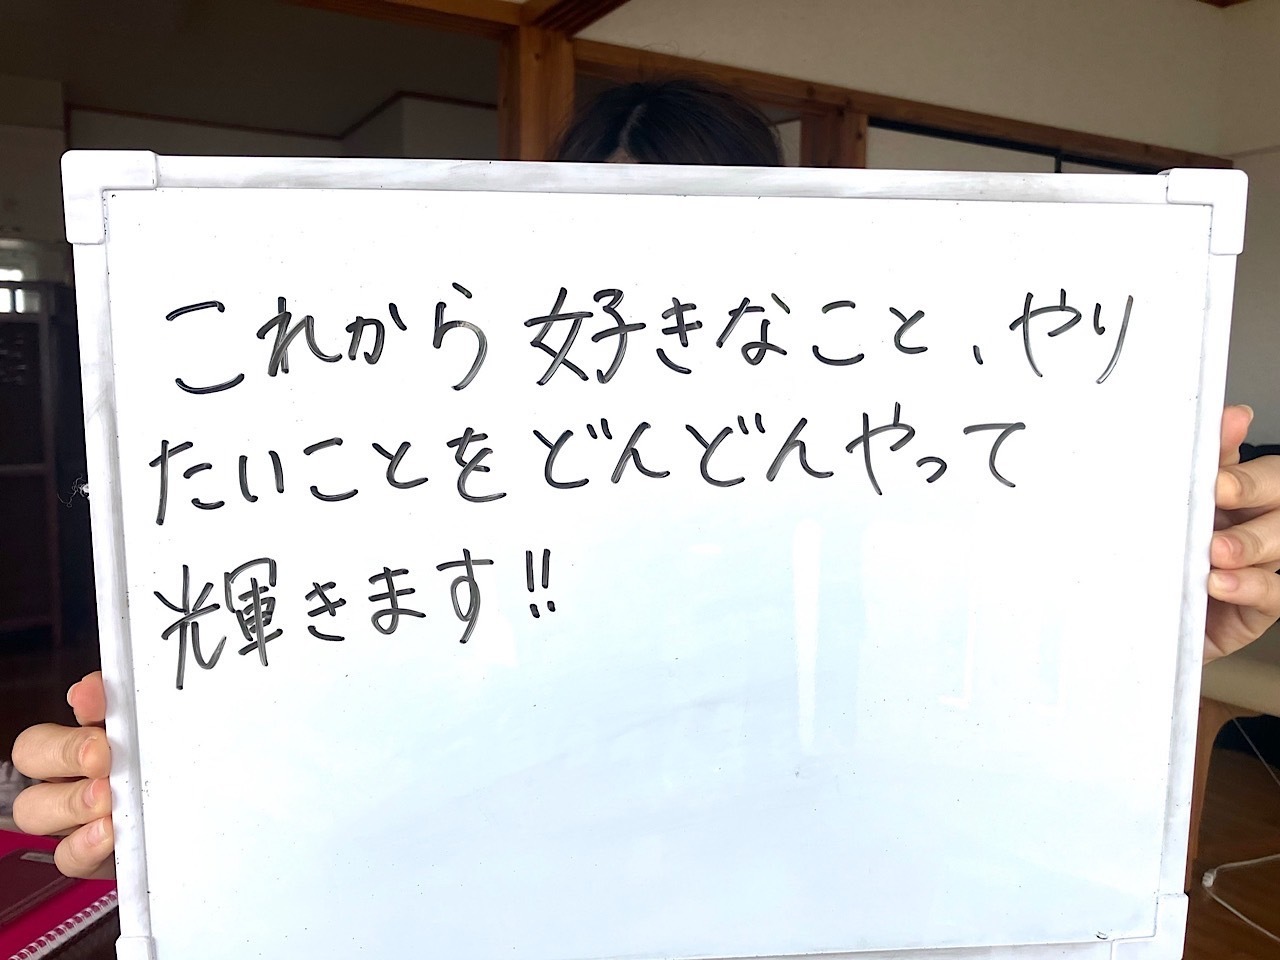 これから好きなこと、やり
たいことをどんどんやって
輝きます!!